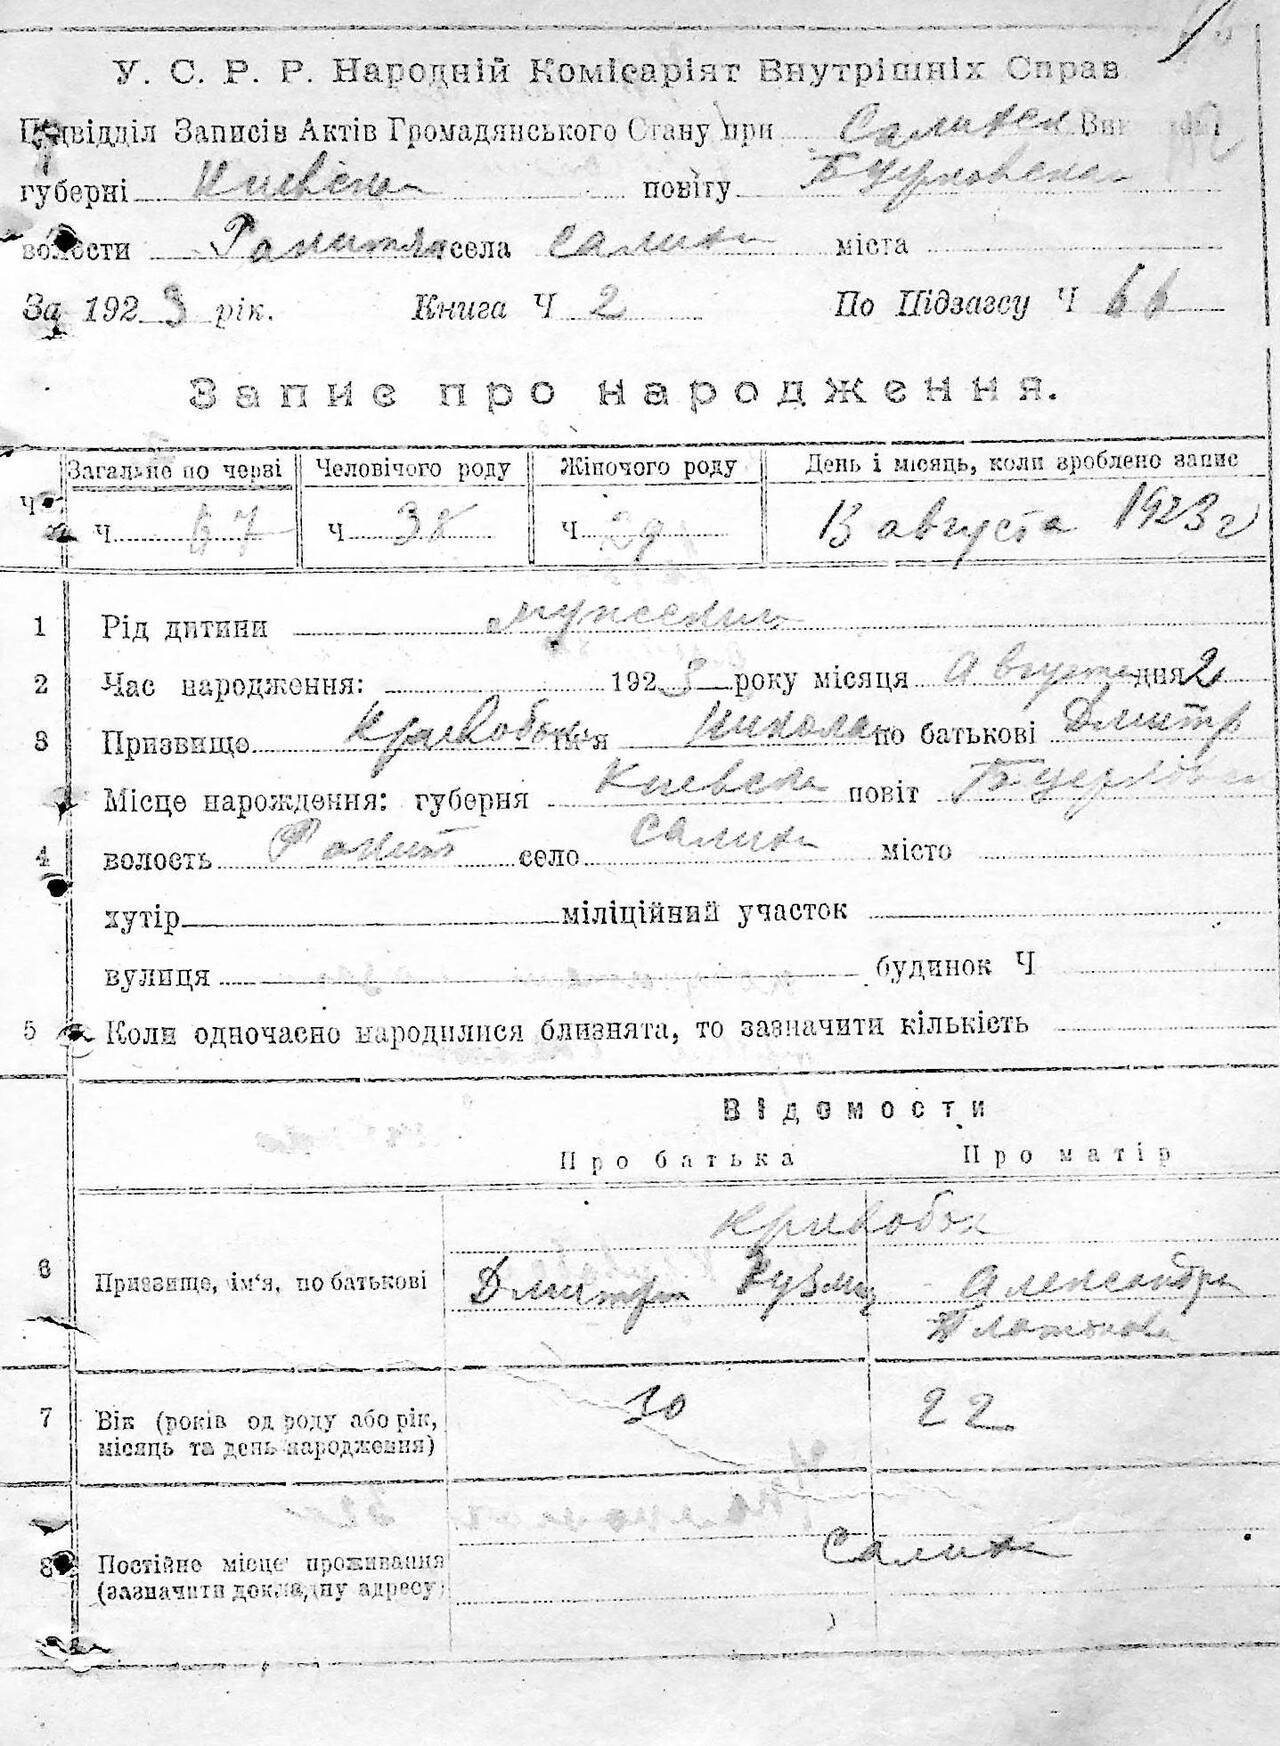 У. С. Р. Р. Народній Комісаріят Внутрішніх Справ
Підвідділ Записів Актів Громадянського Стану при Салихен
губерні Киевска повіту Бцерковска
волости Ракитян села Салиха міста
За 1923 рік. Книга Ч 2 По Підзагсу Ч 66
Запис про народження.
Загальне по черві Человічого роду Жіночого роду День і місяць, коли зроблено запис
Ч 67 Ч 38 Ч 29 13 августа 1923 г
1 Рід дитини
2 Час народження: 1923 року місяця Августа дня 2
3 Призвище Кривобок ім'я Никола по батькові Дмитр
Місце нарождення: губерня Киевска повіт
4 волость Ракит село Салиха місто
хутір міліційний участок
вулиця будинок Ч
5 Коли одночасно народилися близнята, то зазначити кількість
Відомости
Про батька Про матір
Кривобок
6 Призвище, ім'я, по батькові Дмитри Кузмич Александра
Платонова
7 Вік (років од роду або рік, 30 22
місяць та день народження)
Салиха
8 Постійне місце проживання
(зазначити докладну адресу)